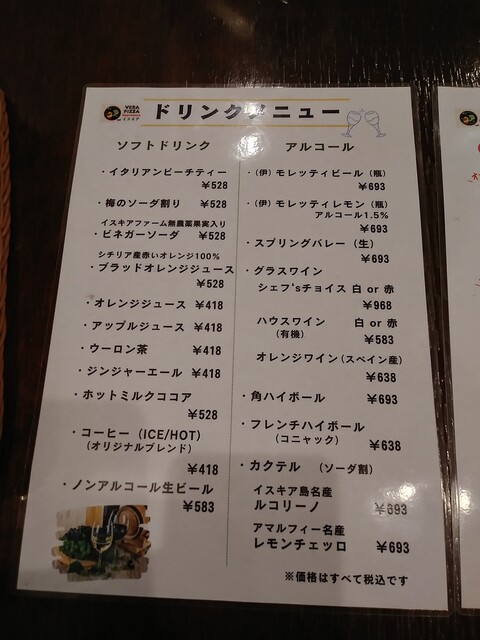 VERA
PIZZA
イスキア
ドリンクメニュー
ソフトドリンク
・イタリアンピーチティー
¥528
・梅のソーダ割り ¥528
イスキアファーム無農薬果実入り
・ビネガーソーダ ¥528
シチリア産赤いオレンジ100%
・ブラッドオレンジジュース
¥528
・オレンジジュース ¥418
・アップルジュース ¥418
・ウーロン茶 ¥418
・ジンジャーエール ¥418
・ホットミルクココア
¥528
・コーヒー（ICE/HOT）
（オリジナルブレンド）
¥418
・ノンアルコール生ビール
¥583
アルコール
・（伊）モレッティビール（瓶）
¥693
・（伊）モレッティレモン（瓶）
アルコール1.5%
¥693
・スプリングバレー（生）
¥693
・グラスワイン
シェフ'sチョイス 白 or 赤
¥968
ハウスワイン 白 or 赤
（有機） ¥583
オレンジワイン（スペイン産）
¥638
・角ハイボール ¥693
・フレンチハイボール
（コニャック） ¥638
・カクテル （ソーダ割）
イスキア島名産
ルコリーノ ¥693
アマルフィー名産
レモンチェッロ ¥693
※価格はすべて税込です